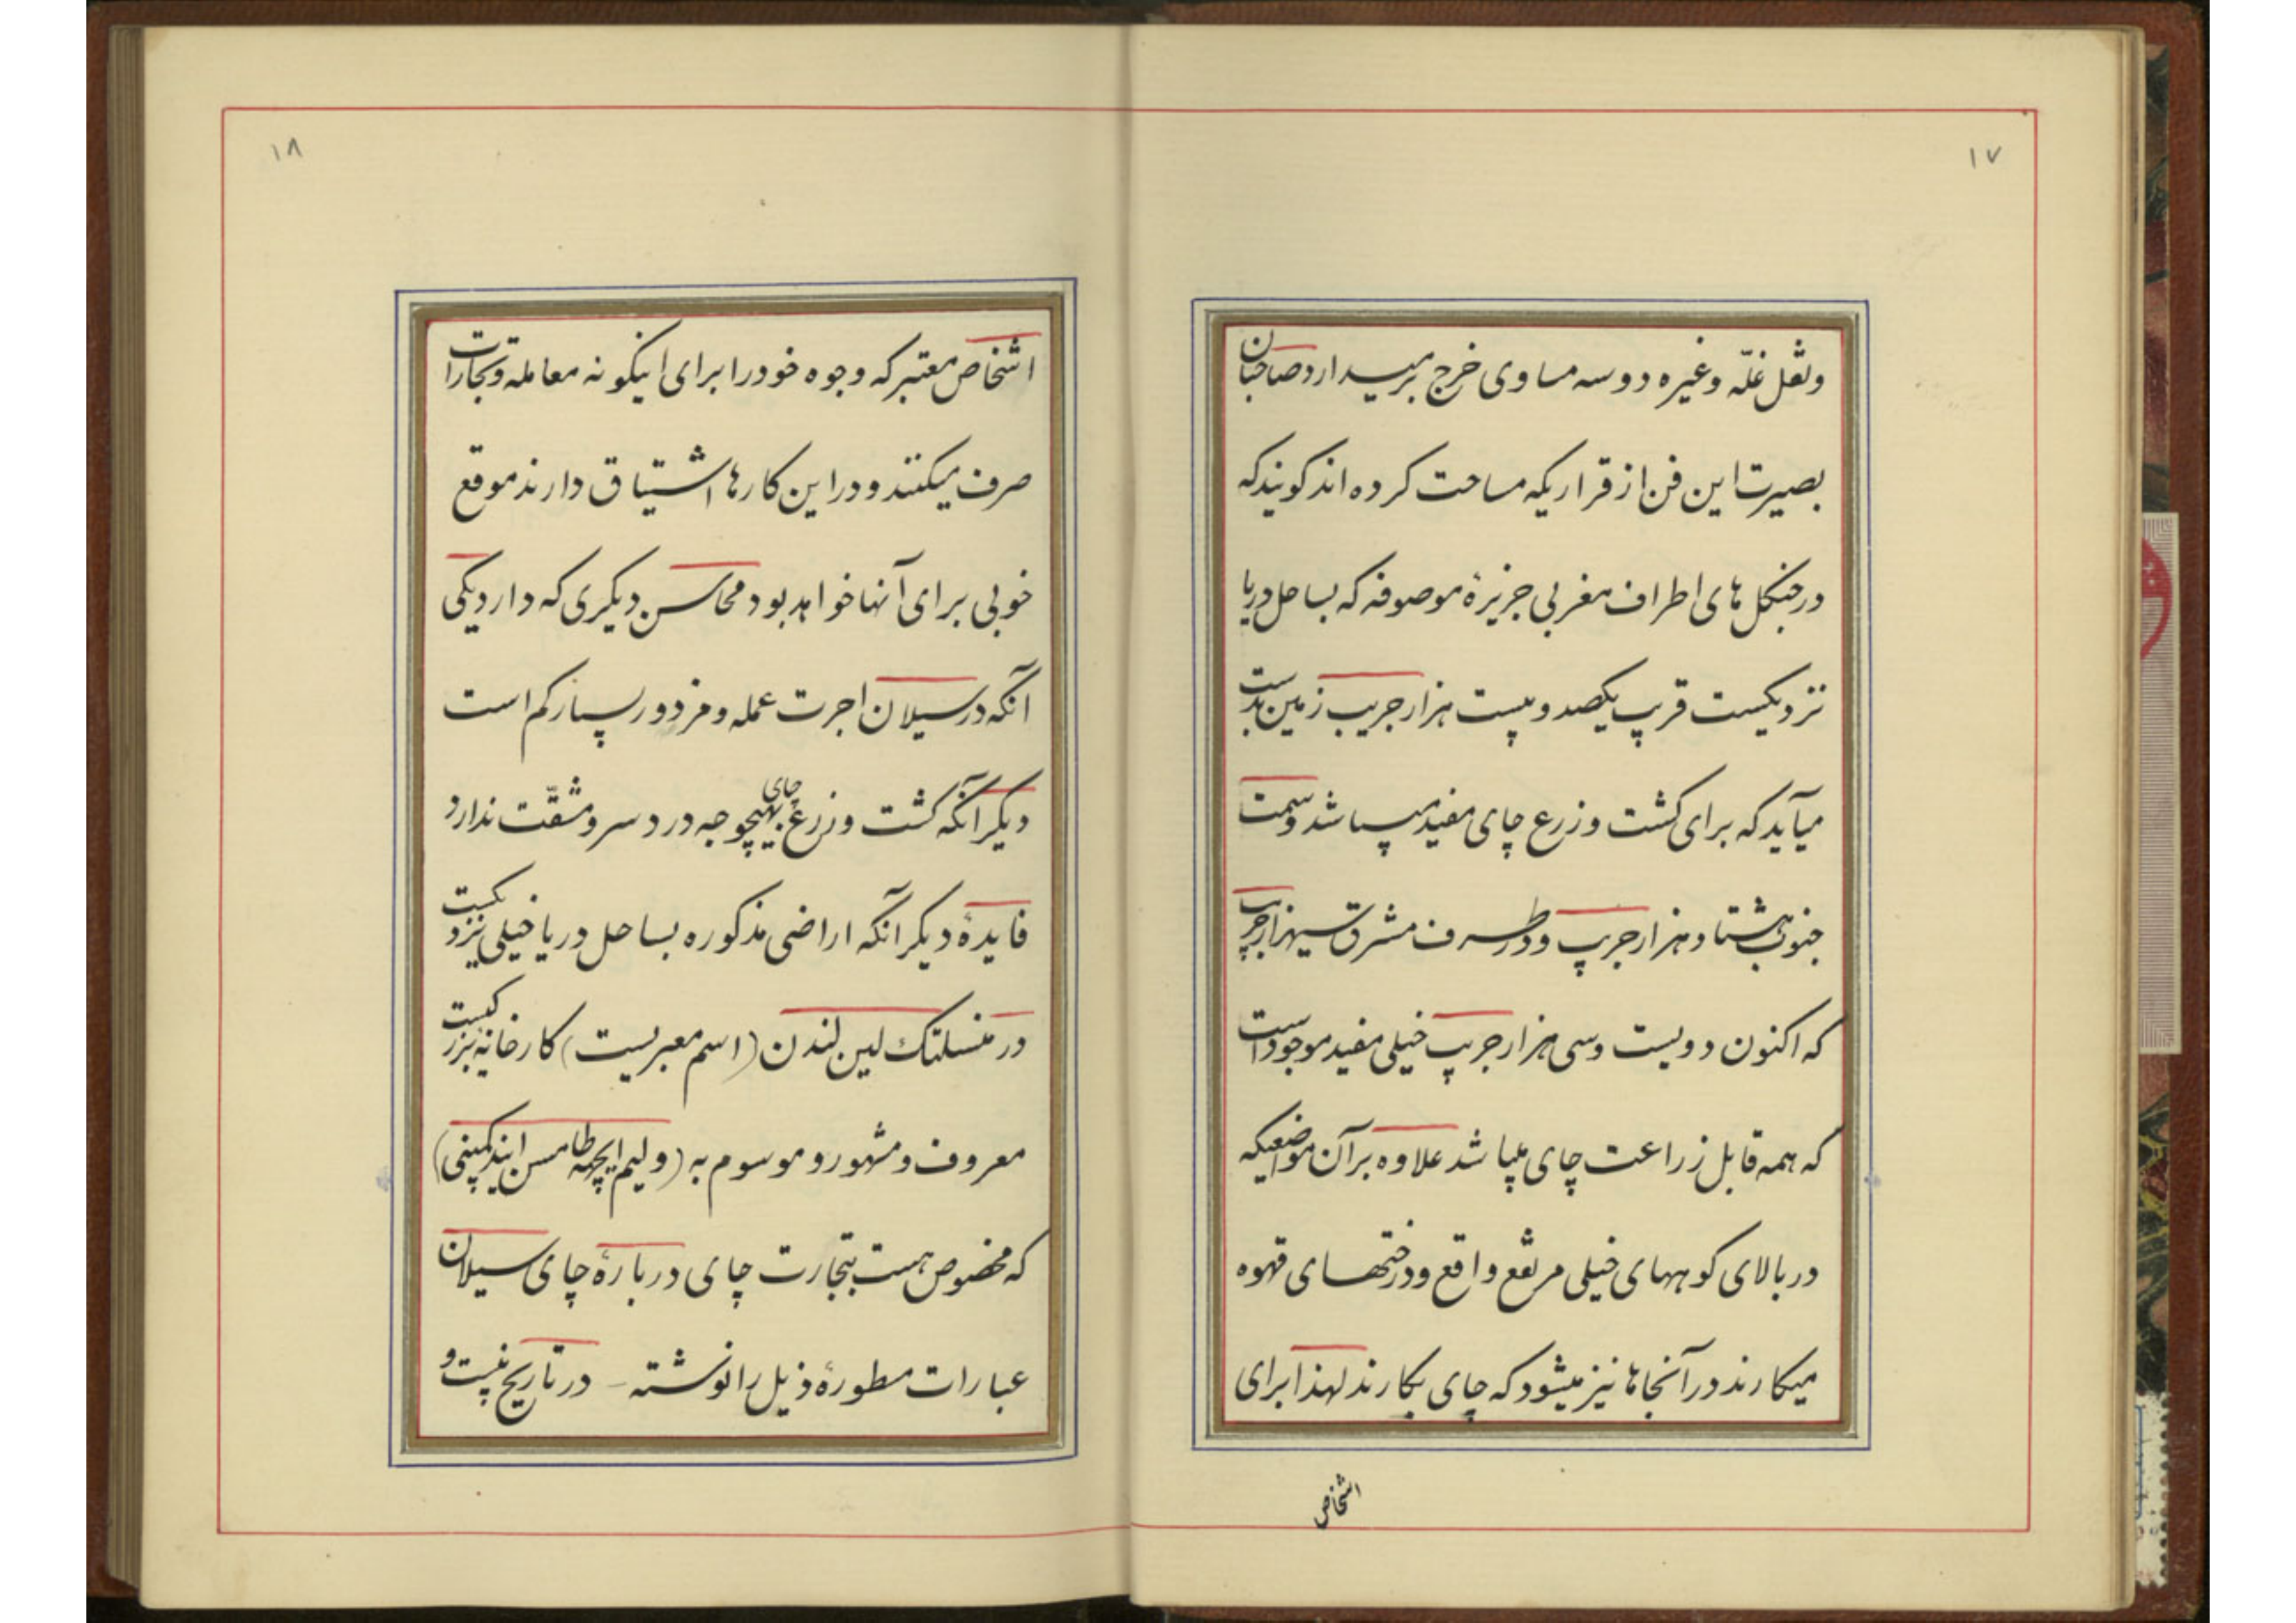 ۱۷
ونقل غلّه وغیره دو سه مساوی خرج برمیدارد صاحبان
بصیرت این فن از قراریکه مساحت کرده اند کویند که
در جنکل های اطراف مغربی جزیرهٔ موصوفه که بساحل دریا
نزدیکست قریب یکصد و بیست هزار جریب زمین بدست
میآید که برای کشت وزرع چای مفید میباشد وسمت
جنوب هشتاد هزار جریب ودر طرف مشرق سیهزار جریب
که اکنون دویست وسی هزار جریب خیلی مفید موجود است
که همه قابل زراعت چای میباشد علاوه بر آن مواضعیکه
در بالای کوههای خیلی مرتفع واقع ودرختهای قهوه
میکارند در آنجاها نیز میشود که چای بکارند لهذا برای
اشخاص
۱۸
اشخاص معتبر که وجوه خود را برای اینکونه معامله وتجارات
صرف میکنند ودر این کارها اشتیاق دارند موقع
خوبی برای آنها خواهد بود محاسن دیکری که دارد یکی
آنکه در سیلان اجرت عمله ومزدور بسیار کم است
دیکر آنکه کشت وزرع چای بهیچوجه درد سر ومشقّت ندارد
فایدهٔ دیکر آنکه اراضی مذکوره بساحل دریا خیلی نزدیکست
در منسلتک لین لندن (اسم معبریست) کارخانهٔ بزرکیست
معروف ومشهور و موسوم به (ولیم ایچهه طامسن ایند کمپنی)
که مخصوص هست بتجارت چای در بارهٔ چای سیلان
عبارات مطورهٔ ذیل را نوشته - در تاریخ بیست و